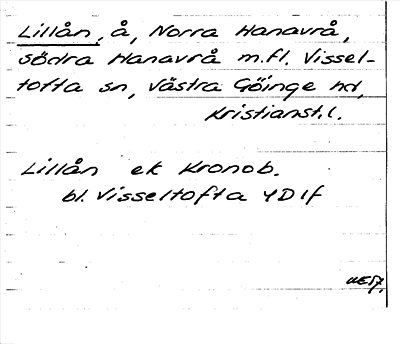 Lillån, å, Norra Hanavrå,
södra Hanavrå m.fl. Vissel-
tofta sn, Västra Göinge hd,
Kristianst.l.
Lillån ek Kronob.
bl. Visseltofta 4D1f